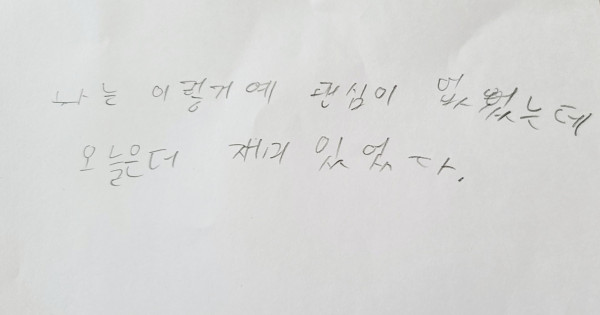 나는 이렇거예 관심이 없었는데
오늘은더 재미 있었다.